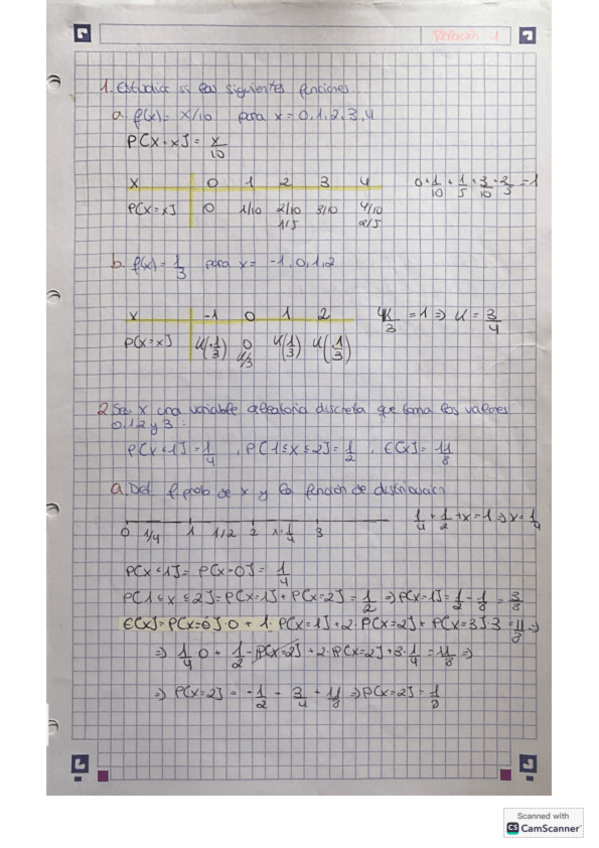 Relación 1
1. Estudiar si las siguientes funciones...
a. f(x) = x/10 para x = 0,1,2,3,4
P[X=x] = x/10
x 0 1 2 3 4
P[X=x] 0 1/10 2/10 3/10 4/10
1/5 2/5
0+1/10+1/5+3/10+2/5=1
b. f(x) = 1/3 para x = -1,0,1,2
x -1 0 1 2
P[X=x] K(1/3) 0 K(1/3) K(1/3)
K/3
4K/3 = 1 ⇒ K = 3/4
2 Sea X una variable aleatoria discreta que toma los valores
0,1,2 y 3:
P[X<1] = 1/4 , P[1≤X≤2] = 1/2 , E[X] = 11/8
a. Det f. prob de x y la función de distribución
0 1/4 1 1/2 2 x=1/4 3
1/4 + 1/2 + x = 1 ⇒ x = 1/4
P[X<1] = P[X=0] = 1/4
P[1≤X≤2] = P[X=1] + P[X=2] = 1/2 ⇒ P[X=1] = 1/2 - 1/8 = 3/8
E[X] = P[X=0]·0 + 1·P[X=1] + 2·P[X=2] + P[X=3]·3 = 11/8 ⇒
⇒ 1/4·0 + 1/2 - P[X=2] + 2·P[X=2] + 3·1/4 = 11/8 ⇒
⇒ P[X=2] = -1/2 - 3/4 + 11/8 ⇒ P[X=2] = 1/8
Scanned with
CS CamScanner